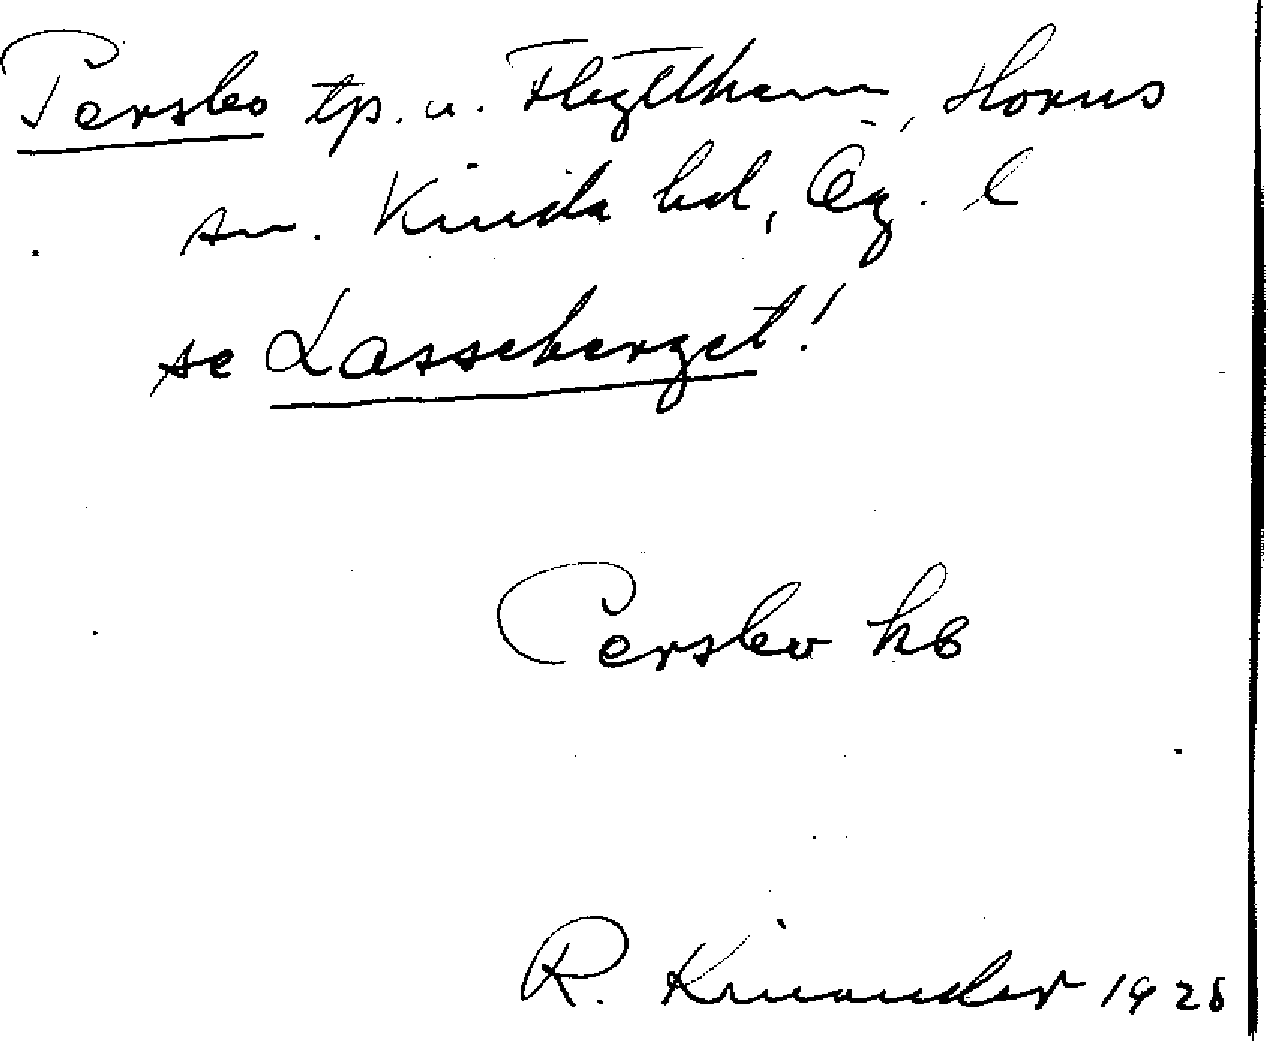 Persbo tp. u. Flytthamn, Horns
sn. Kinda hd, Ög. l
se Lasseberget!
Persbo hb
R. Kinander 1925